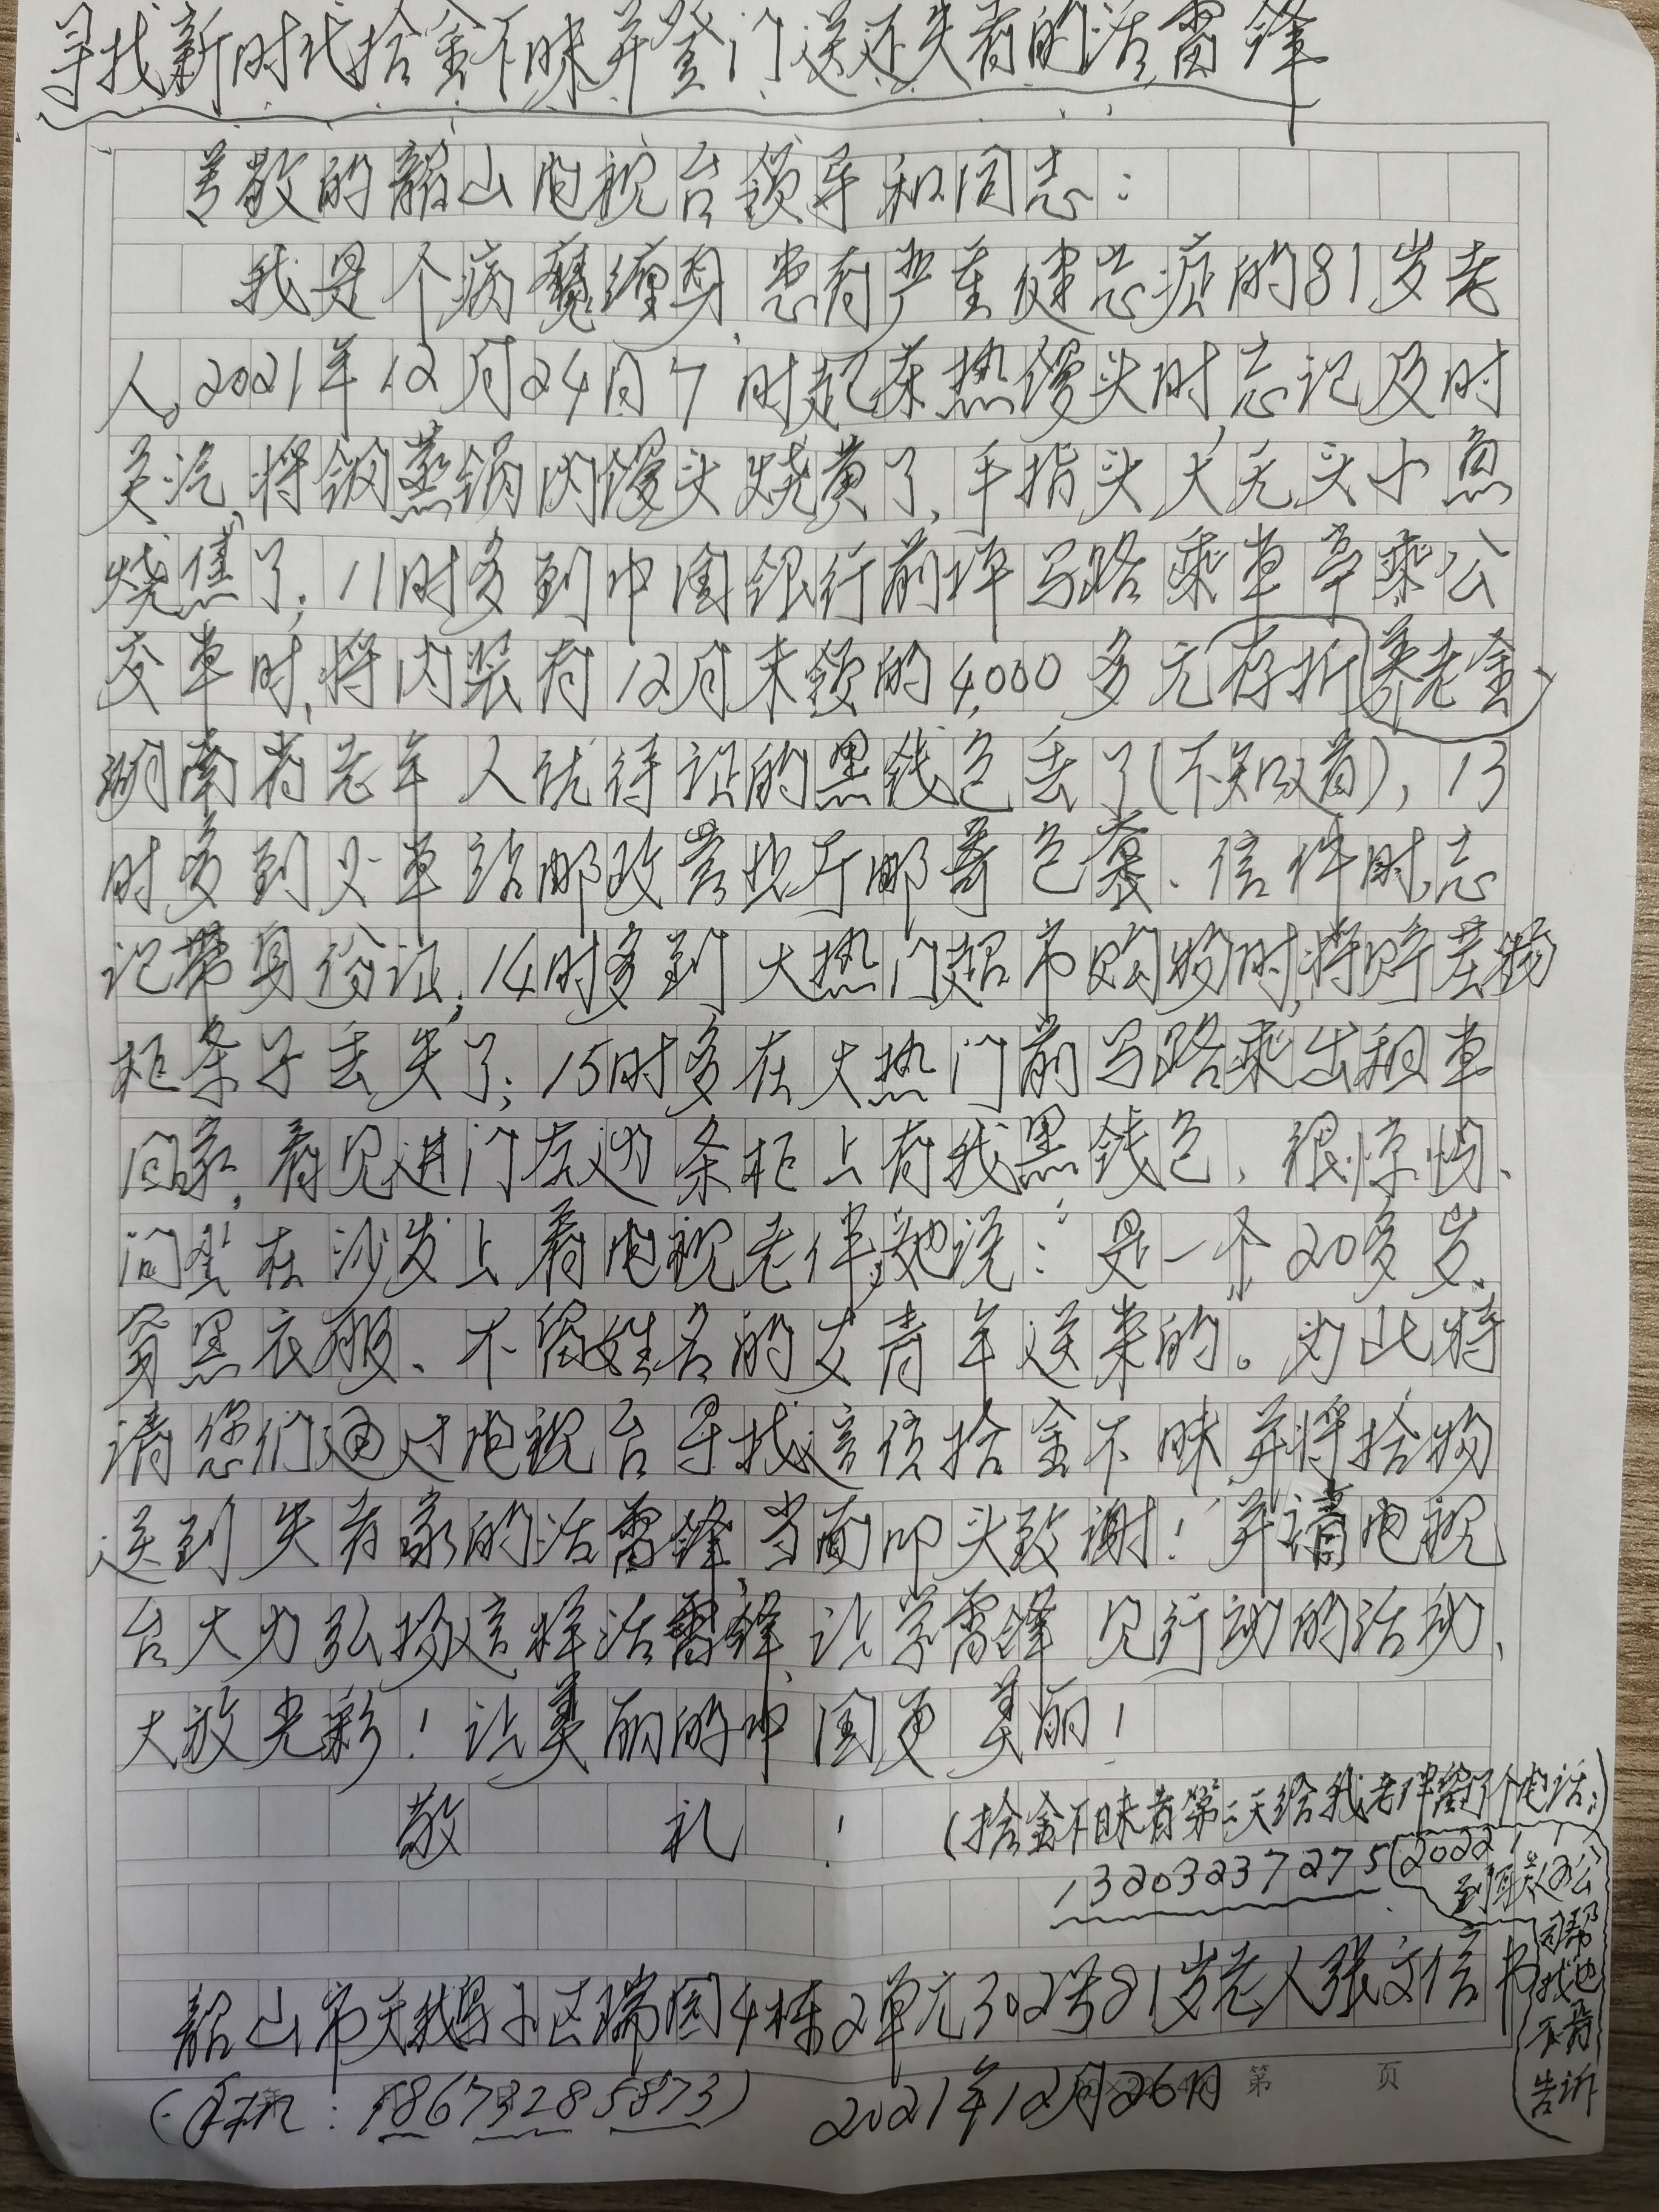 寻找新时代拾金不昧并登门送还失者的活雷锋
尊敬的韶山电视台领导和同志：
我是个病魔缠身、患有严重健忘症的81岁老
人。2021年12月24日7时起床热馒头时忘记及时
关汽,将钢蒸锅内馒头烧黄了,手指头大无头小鱼
烧焦了；11时多到中国银行前坪马路乘车亭乘公
交车时,将内装有12月未领的4,000多元存折养老金
湖南省老年人优待证的黑钱包丢了(不知道),13
时多到火车站邮政营业厅邮寄包裹、信件时,忘
记带身份证；14时多到大热门超市购物时,将贮茬物
柜条子丢失了；15时多在大热门前马路乘出租车
回家,看见进门左边条柜上有我黑钱包、很惊怕、
问坐在沙发上看电视老伴,她说：是一个20多岁、
穿黑衣服、不留姓名的女青年送来的。为此特
请您们通过电视台寻找这位拾金不昧,并将拾物
送到失者家的活雷锋,当面叩头致谢！并请电视
台大力弘扬这样活雷锋,让学雷锋见行动的活动、
大放光彩！让美丽的中国更美丽！
敬礼！
(拾金不昧者第二天给我老伴留了个电话：
13203237275
(2022 1、1
到联通公
司帮
找她
不肯
告诉
韶山市天鹅小区瑞园4栋2单元302号81岁老人张文信书
(手机：18673285873) 2021年12月26日
第 页